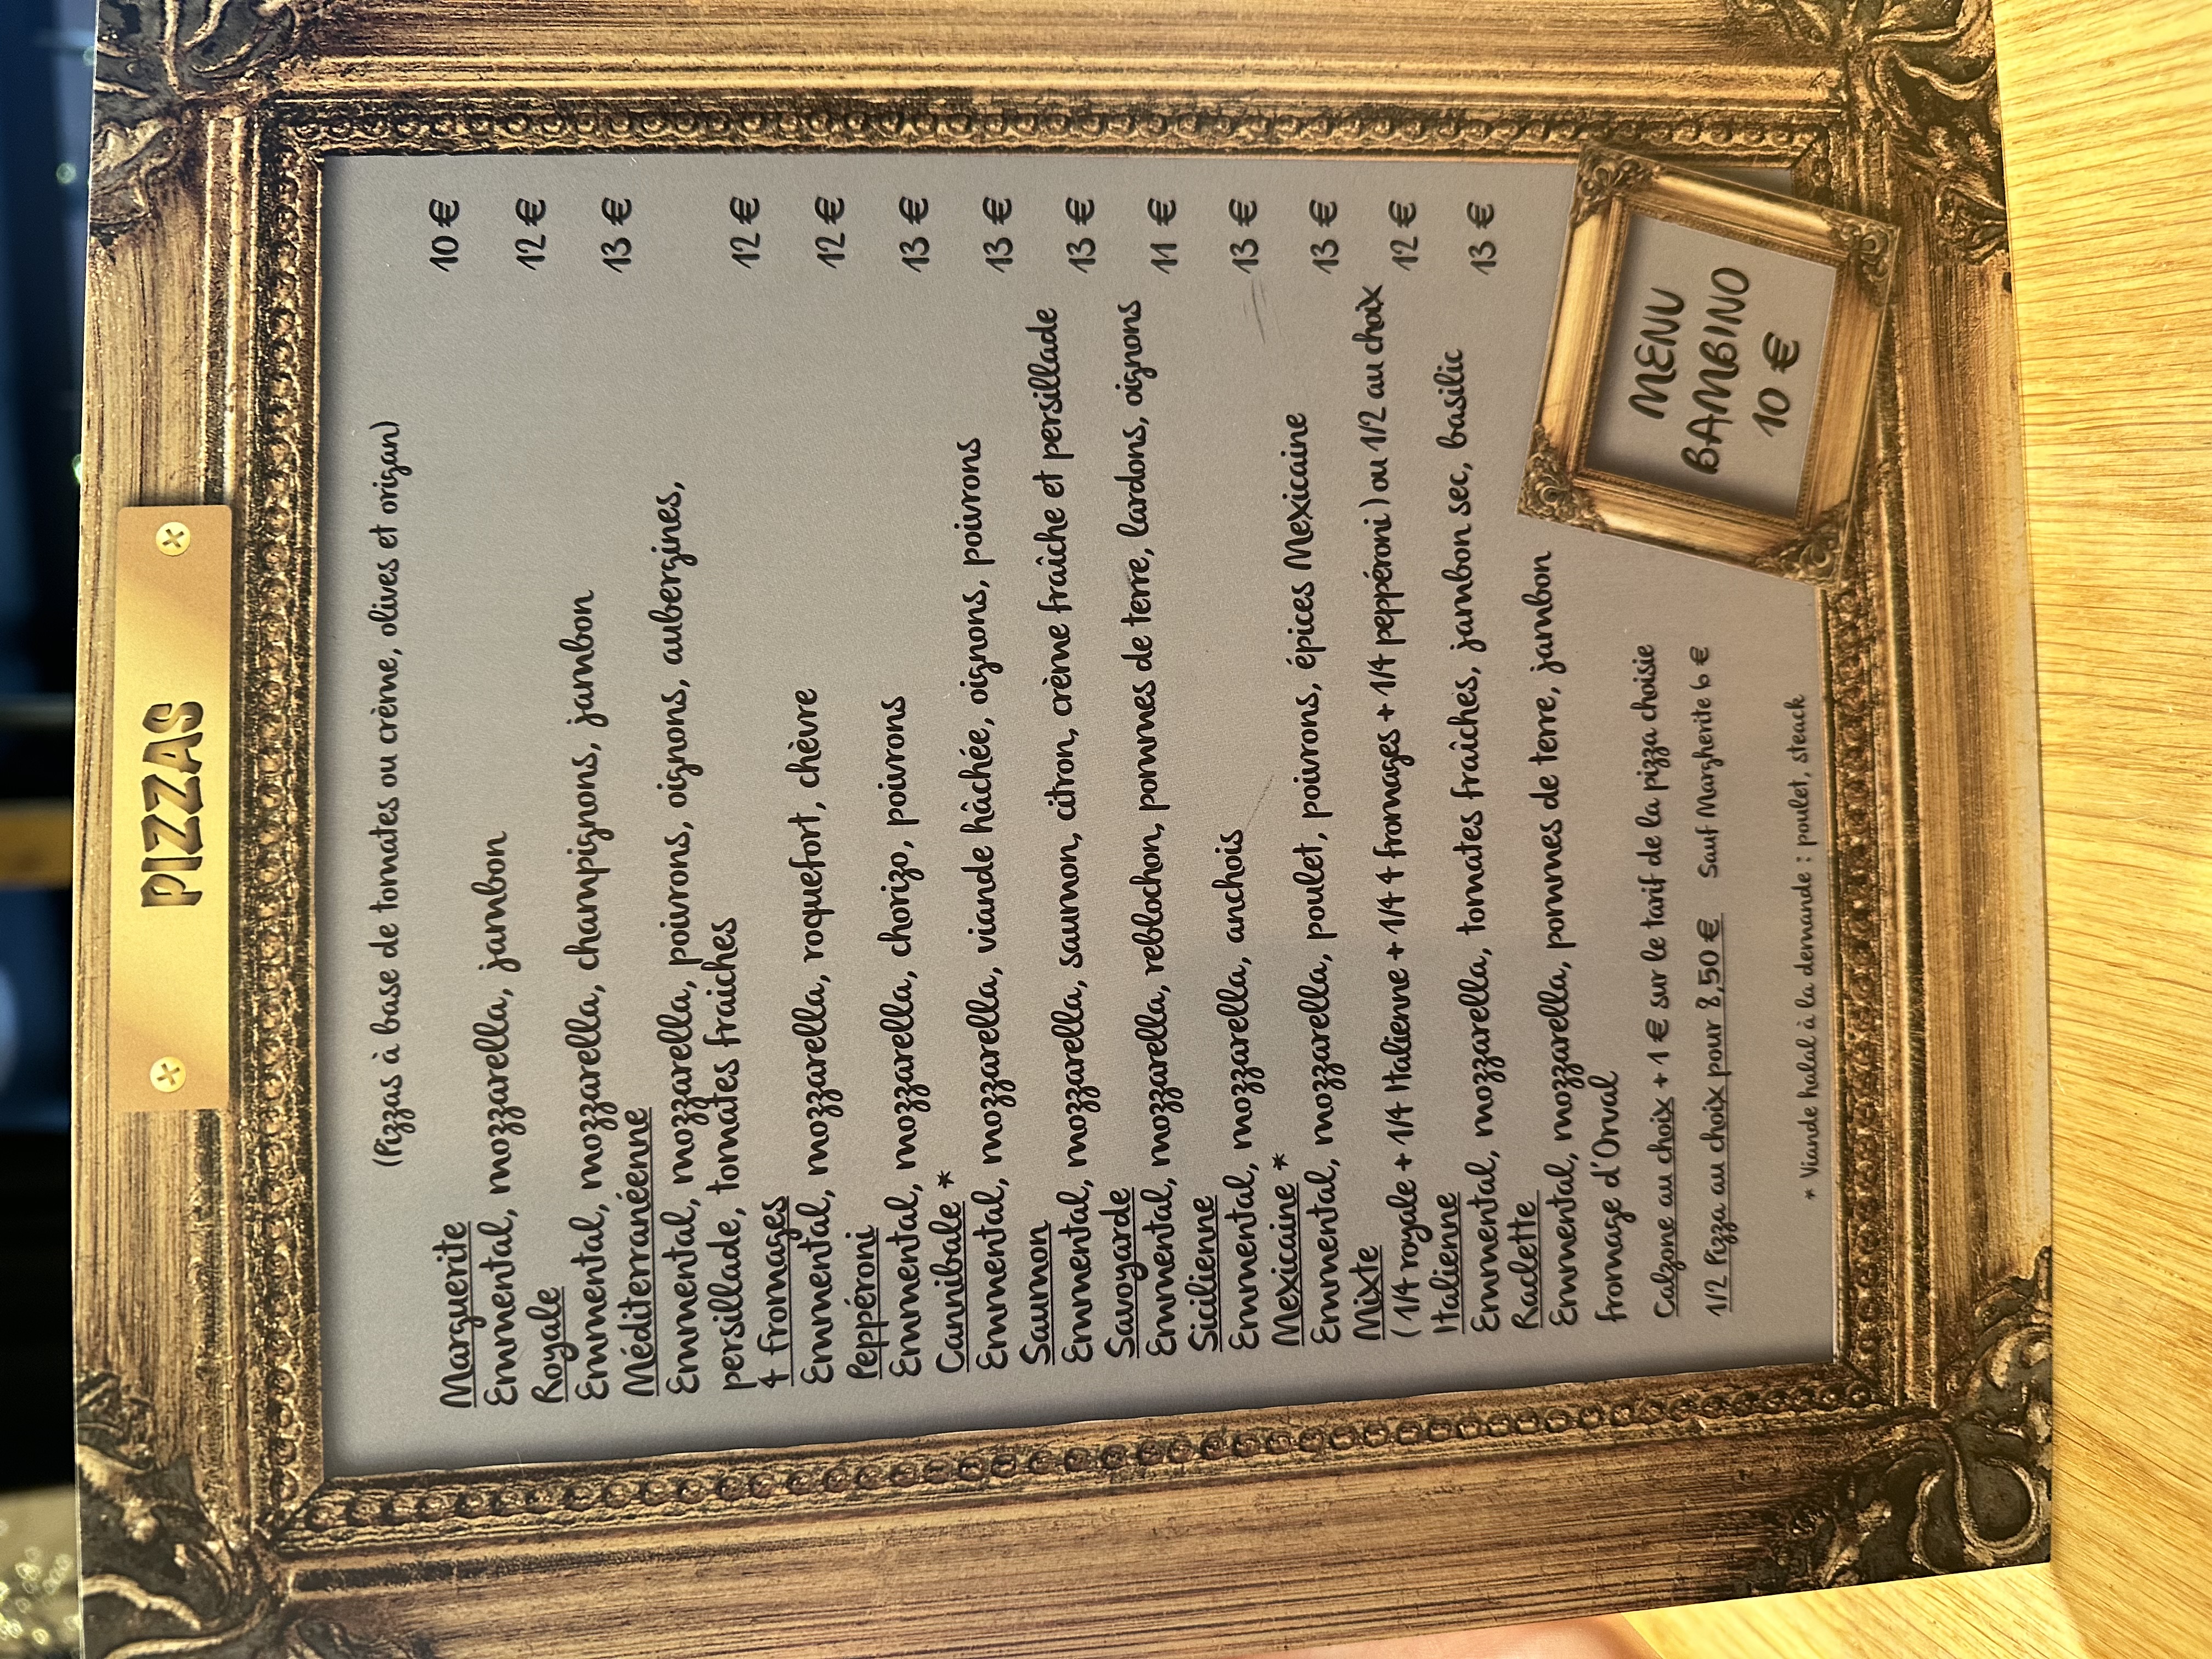 PIZZAS
(Pizzas à base de tomates ou crème, olives et origan)
Marguerite 10 €
Emmental, mozzarella, jambon
Royale 12 €
Emmental, mozzarella, champignons, jambon
Méditerranéenne 13 €
Emmental, mozzarella, poivrons, oignons, aubergines,
persillade, tomates fraiches
4 fromages 12 €
Emmental, mozzarella, roquefort, chèvre
Peppéroni 12 €
Emmental, mozzarella, chorizo, poivrons
Cannibale * 13 €
Emmental, mozzarella, viande hâchée, oignons, poivrons
Saumon 13 €
Emmental, mozzarella, saumon, citron, crème fraîche et persillade
Savoyarde 13 €
Emmental, mozzarella, reblochon, pommes de terre, lardons, oignons
Sicilienne 11 €
Emmental, mozzarella, anchois
Mexicaine * 13 €
Emmental, mozzarella, poulet, poivrons, épices Mexicaine
Mixte 13 €
(1/4 royale + 1/4 Italienne + 1/4 4 fromages + 1/4 peppéroni) ou 1/2 au choix
Italienne 12 €
Emmental, mozzarella, tomates fraîches, jambon sec, basilic
Raclette 13 €
Emmental, mozzarella, pommes de terre, jambon
fromage d'Orval
Calzone au choix + 1 € sur le tarif de la pizza choisie
1/2 Pizza au choix pour 8,50 € Sauf Margherite 6 €
* Viande halal à la demande : poulet, steack
MENU
BAMBINO
10 €